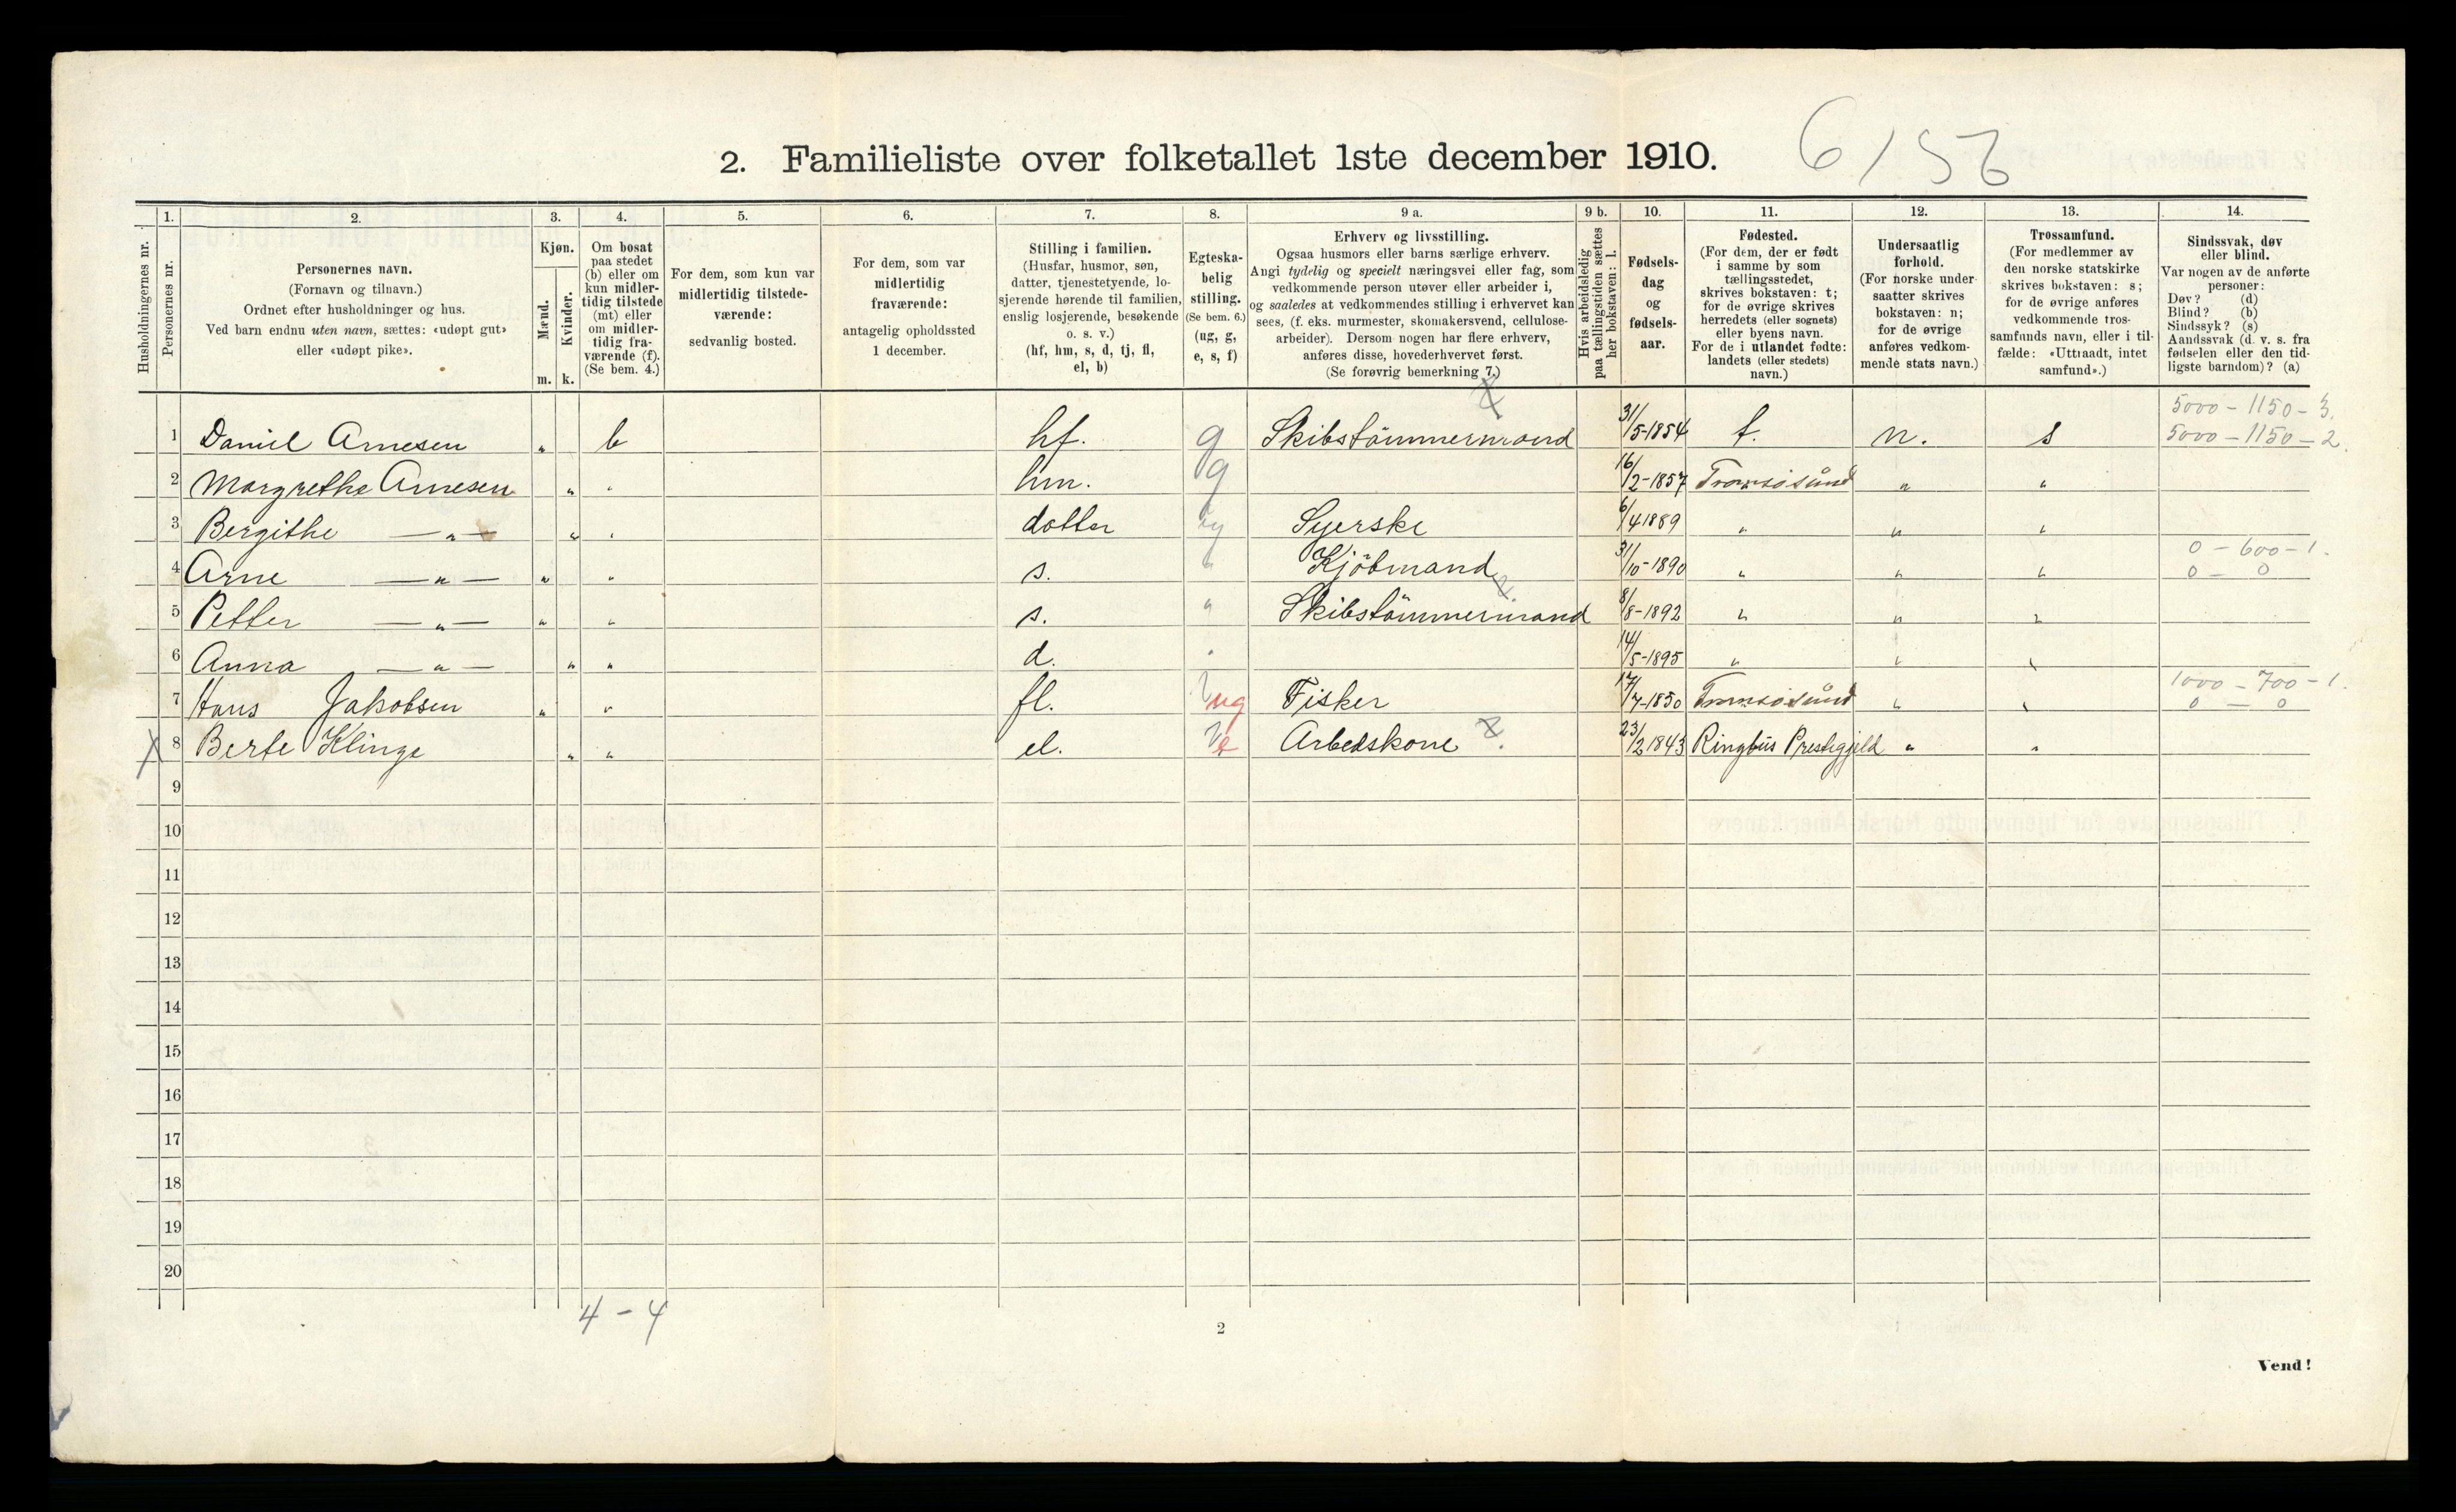 2. Familieliste over folketallet 1ste december 1910.
6/56
Husholdningernes nr.
1. Personernes nr.
2. Personernes navn. (Fornavn og tilnavn.) Ordnet efter husholdninger og hus. Ved barn endnu uten navn, sættes: «udøpt gut» eller «udøpt pike».
3. Kjøn. Mænd. m. Kvinder. k.
4. Om bosat paa stedet (b) eller om kun midlertidig tilstede (mt) eller om midlertidig fraværende (f). (Se bem. 4.)
5. For dem, som kun var midlertidig tilstedeværende: sedvanlig bosted.
6. For dem, som var midlertidig fraværende: antagelig opholdssted 1 december.
7. Stilling i familien. (Husfar, husmor, søn, datter, tjenestetyende, losjerende hørende til familien, enslig losjerende, besøkende o. s. v.) (hf, hm, s, d, tj, fl, el, b)
8. Egteskabelig stilling. (Se bem. 6.) (ug, g, e, s, f)
9 a. Erhverv og livsstilling. Ogsaa husmors eller barns særlige erhverv. Angi tydelig og specielt næringsvei eller fag, som vedkommende person utøver eller arbeider i, og saaledes at vedkommendes stilling i erhvervet kan sees, (f. eks. murmester, skomakersvend, cellulosearbeider). Dersom nogen har flere erhverv, anføres disse, hovederhvervet først. (Se forøvrig bemerkning 7.)
9 b. Hvis arbeidsledig paa tællingstiden sættes her bokstaven: l.
10. Fødselsdag og fødselsaar.
11. Fødested. (For dem, der er født i samme by som tællingsstedet, skrives bokstaven: t; for de øvrige skrives herredets (eller sognets) eller byens navn. For de i utlandet fødte: landets (eller stedets) navn.)
12. Undersaatlig forhold. (For norske undersaatter skrives bokstaven: n; for de øvrige anføres vedkommende stats navn.)
13. Trossamfund. (For medlemmer av den norske statskirke skrives bokstaven: s; for de øvrige anføres vedkommende trossamfunds navn, eller i tilfælde: «Uttraadt, intet samfund».)
14. Sindssvak, døv eller blind. Var nogen av de anførte personer: Døv? (d) Blind? (b) Sindssyk? (s) Aandssvak (d. v. s. fra fødselen eller den tidligste barndom)? (a)
5000 - 1150 - 3.
1 Daniel Arnesen " b hf. g Skibstömmermand 31/5-1854 t. n. s 5000 - 1150 - 2
2 Margrethe Arnesen " " hm. g 16/2-1857 Tromsösund " "
3 Bergithe — " — " " dotter ug Syerske 6/4 1889 " " "
0 - 600 - 1.
4 Arne — " — " " s. " Kjöbmand 31/10-1890 " " " 0 - 0
5 Petter — " — " " s. " Skibstömmermand 8/8-1892 " " "
6 Anna — " — " " d. " 14/5-1895 " " "
1000 - 700 - 1.
7 Hans Jakobsen " " fl. ug Fisker 17/7-1850 Tromsösund " " 0 - 0
X 8 Berte Klinge " " el. e Arbedskone 23/2 1843 Ringbus Prestegjeld " "
9
10
11
12
13
14
15
16
17
18
19
20
4 - 4
2
Vend!